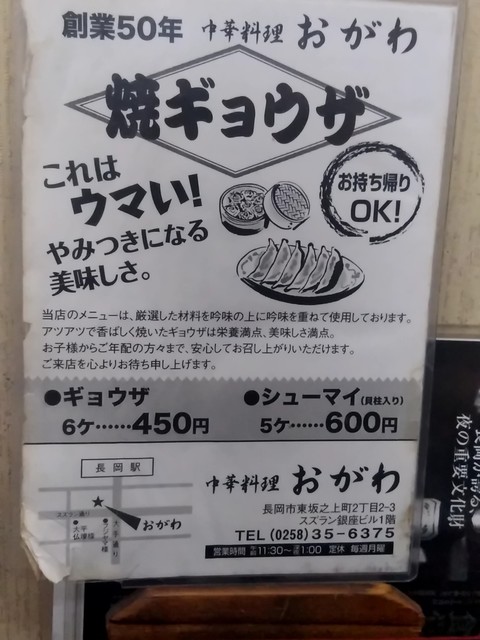 創業50年 中華料理 おがわ
焼ギョウザ
これは
ウマい!
やみつきになる
美味しさ。
お持ち帰り
OK!
当店のメニューは、厳選した材料を吟味の上に吟味を重ねて使用しております。
アツアツで香ばしく焼いたギョウザは栄養満点、美味しさ満点。
お子様からご年配の方々まで、安心してお召し上がりいただけます。
ご来店を心よりお待ち申し上げます。
●ギョウザ
6ケ……450円
●シューマイ(貝柱入り)
5ケ……600円
長岡駅
スズラン通り
●大平
仏壇様
大手通り
おがわ
中華料理 おがわ
長岡市東坂之上町2丁目2-3
スズラン銀座ビル1階
TEL(0258)35-6375
営業時間 午前11:30~深夜1:00 定休 毎週月曜
夜の重要文化財